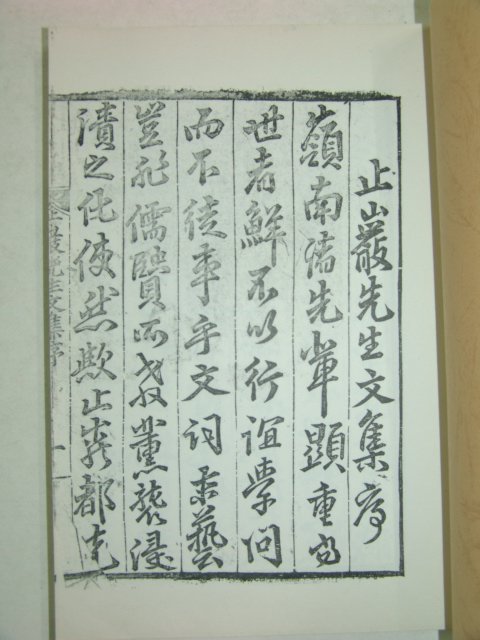 止山巖先生文集序
嶺南儒先輩顯重於
世者鮮不以行誼學問
而不徒事乎文詞末藝
豈非儒賢所教薰襲浸
漬之化使然歟止巖都克
巖先生文集序